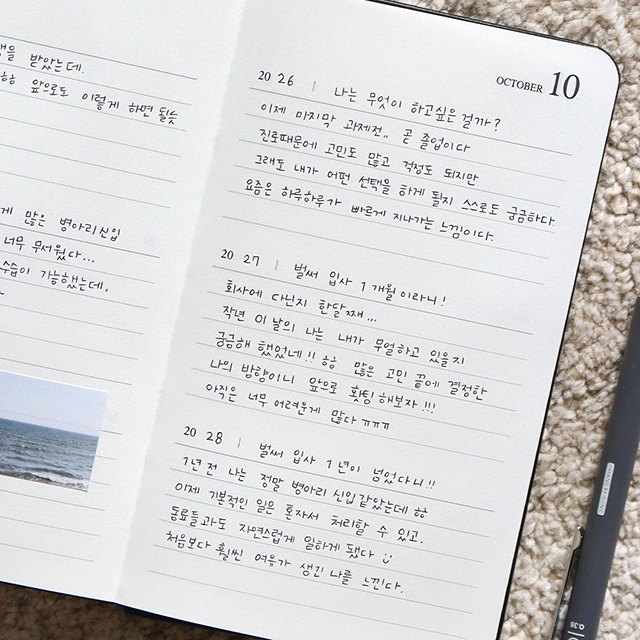 을 받았는데.
ㅎㅎ 앞으로도 이렇게 하면 될듯
게 많은 병아리신입
너무 무서웠다...
수습이 가능했는데,
OCTOBER 10
20 26 | 나는 무엇이 하고싶은 걸까?
이제 마지막 과제전,, 곧 졸업이다
진로때문에 고민도 많고 걱정도 되지만
그래도 내가 어떤 선택을 하게 될지 스스로도 궁금하다.
요즘은 하루하루가 빠르게 지나가는 느낌이다.
20 27 | 벌써 입사 1개월이라니!
회사에 다닌지 한달째...
작년 이 날의 나는 내가 무얼하고 있을지
궁금해 했었네!! ㅎㅎ 많은 고민 끝에 결정한
나의 방향이니 앞으로 홧팅 해보자!!!
아직은 너무 어려운게 많다ㅠㅠㅠ
20 28 | 벌써 입사 1년이 넘었다니!!
1년 전 나는 정말 병아리 신입같았는데 ㅎㅎ
이제 기본적인 일은 혼자서 처리할 수 있고.
동료들과도 자연스럽게 일하게 됐다 :)
처음보다 훨씬 여유가 생긴 나를 느낀다.
0.38